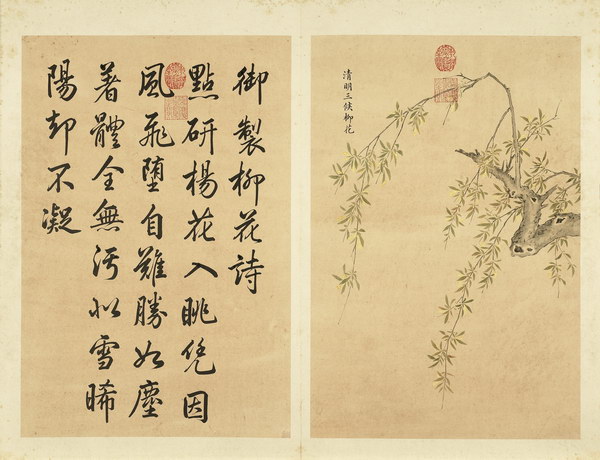 清明三候柳花
御製柳花詩
點研楊花入眺凭因
風飛墮自難勝如塵
著體全無污似雪晞
陽却不凝